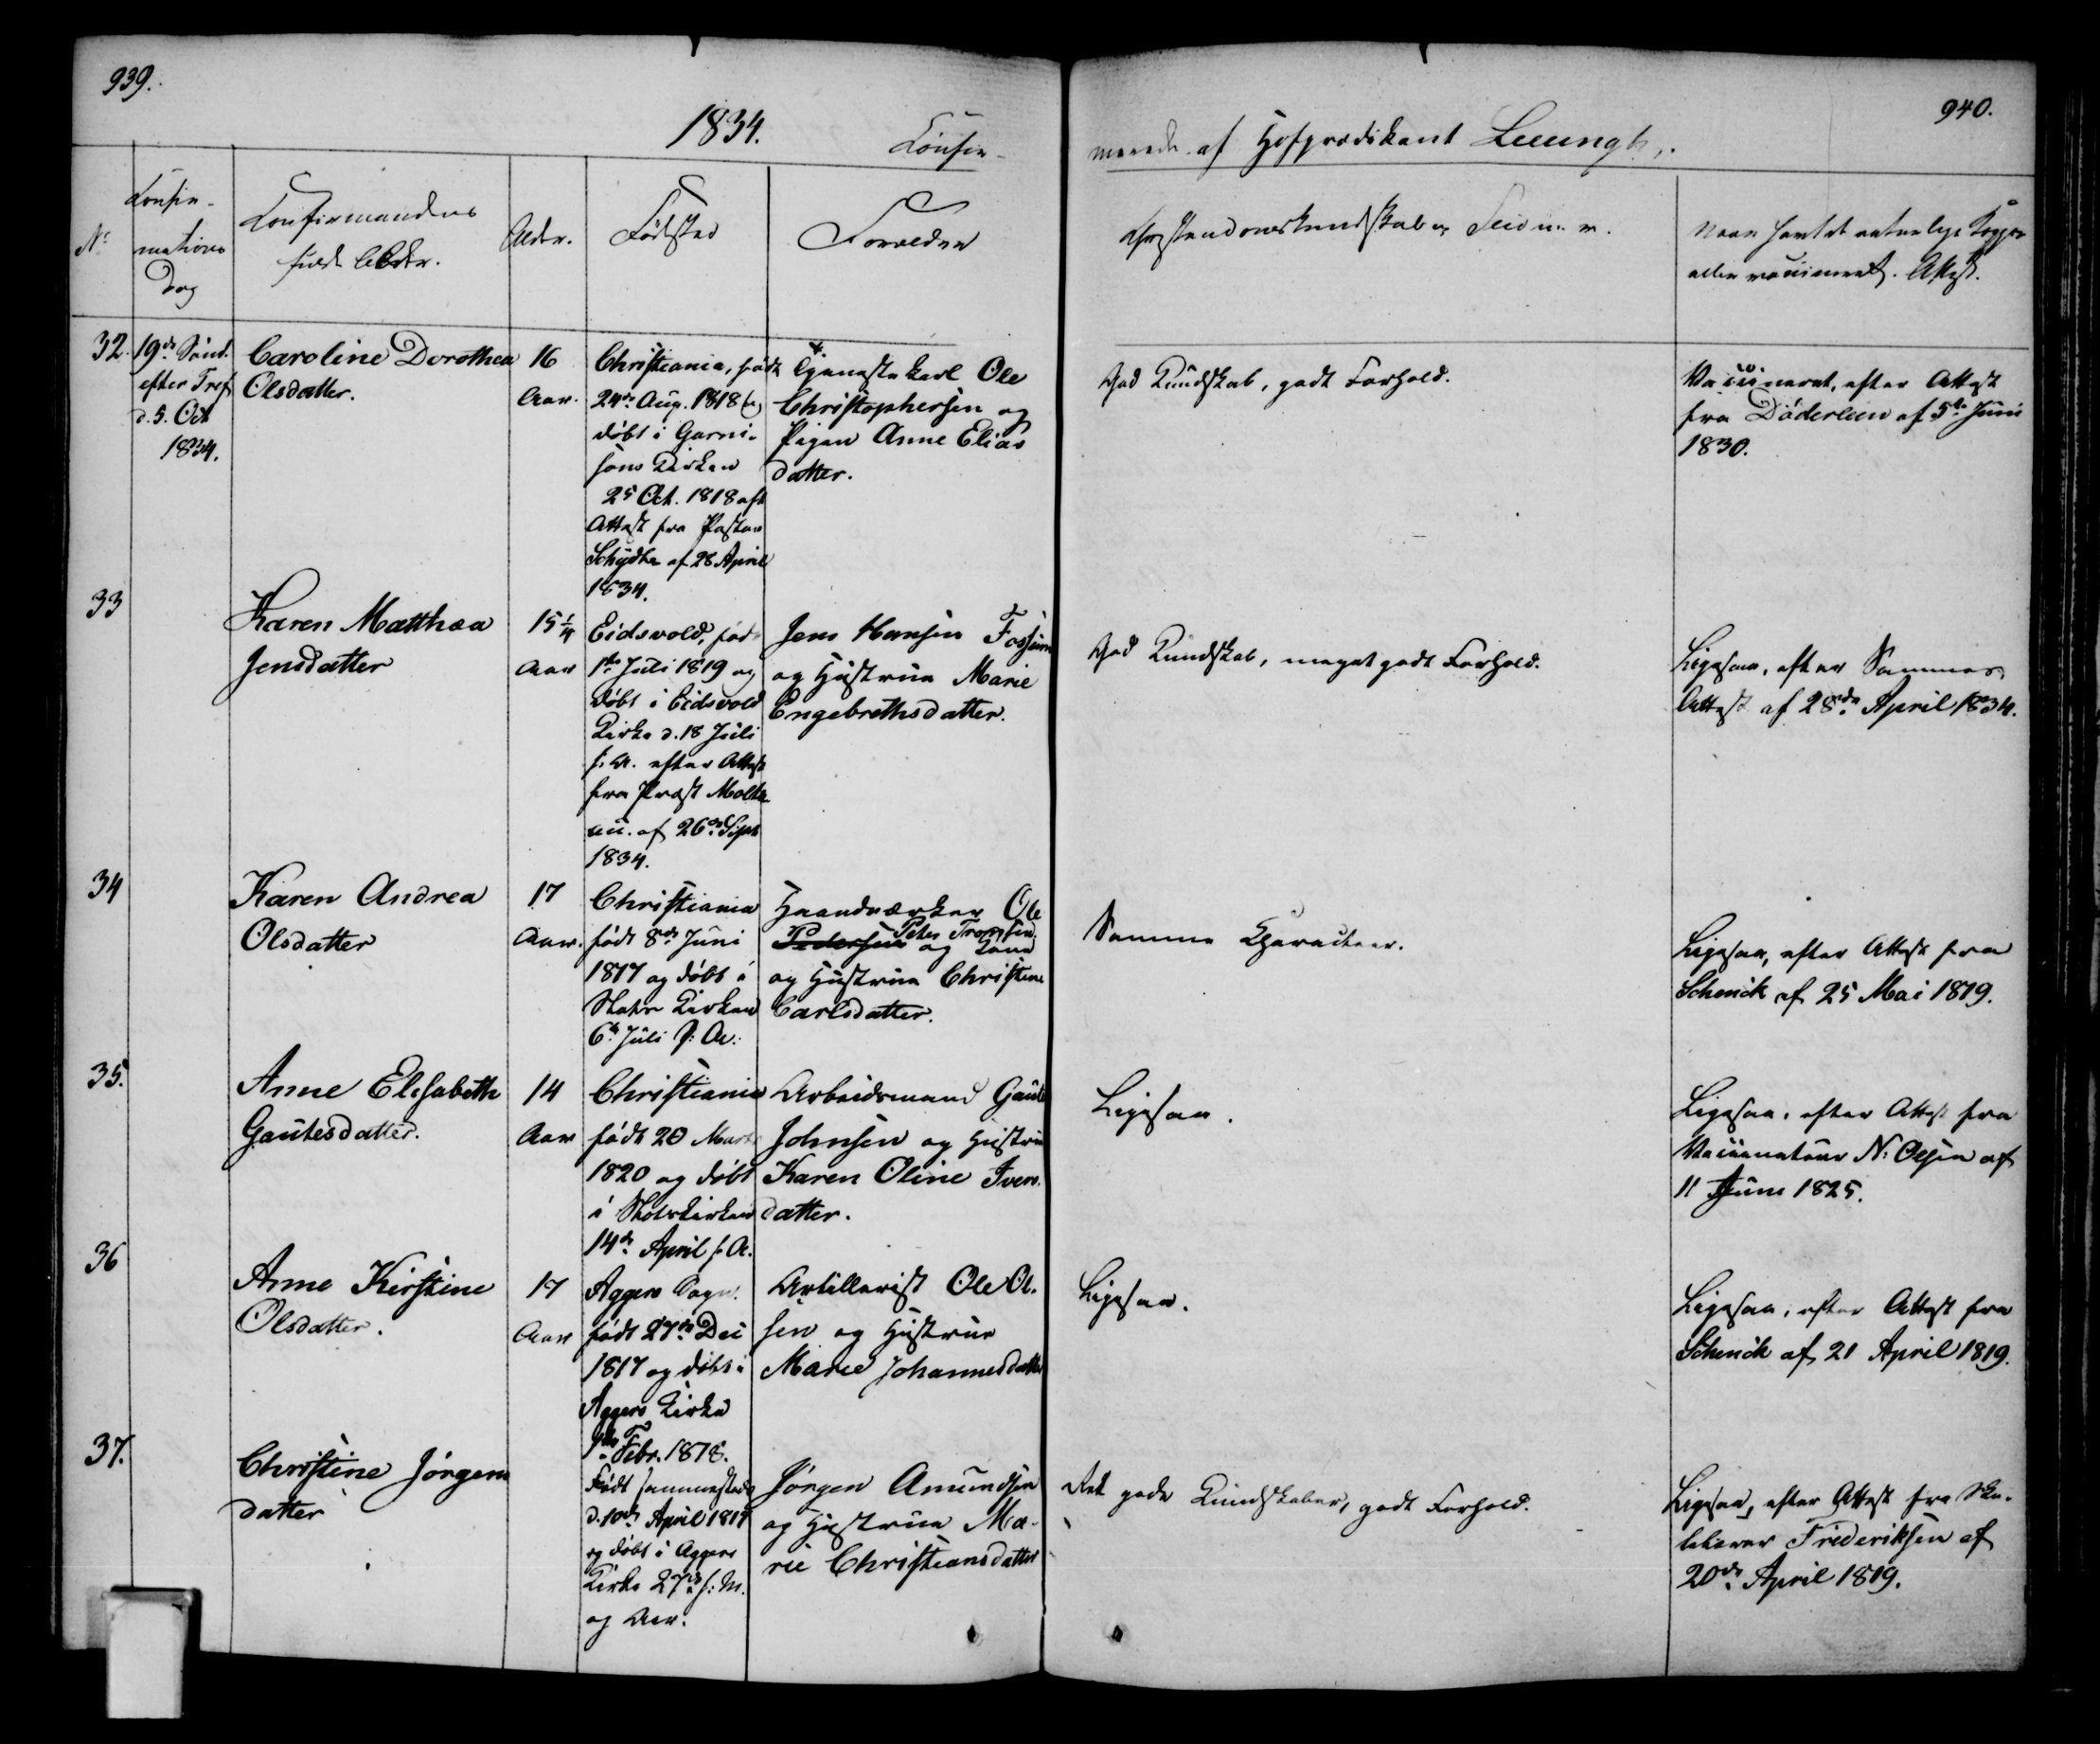 939.
1834.
Confir-
940.
merede af Hofprædikant
No
Confir-
mations
Dag
Confirmandens
fulde Alder.
Fødested
Forældre
Christendomskundskab
Naar havt de naturlige Kopper
eller vaccineret. Attest.
32.
19de Sönd.
efter Tref
d. 5. Oct
1834.
Caroline Dorothea
Olsdatter.
16
Aar.
Christiania, född
24de Aug. 1818
döbt i Garni-
sons Kirken
25 Oct. 1818 eft
Attest fra Pastor
Schydtz af 28 April
1834.
Tjenestekarl Ole
Christophersen og
Pigen Anne Elias
datter.
God Kundskab, godt Forhold.
Vaccineret, efter Attest
fra Döderlein af 5te Juni
1830.
33
Karen Matthæa
Jensdatter
15 1/4
Aar
Eidsvold, föd
1ste Juli 1819 og
döbt i Eidsvold
Kirke d. 18 Juli
s. A. efter Attest
fra Præst
af 26de Sept
1834.
Jens Hansen Fossum
og Hustrue Marie
Engebrethsdatter.
God Kundskab, meget godt Forhold.
Ligesaa, efter Sammes
Attest af 28de April 1834.
34
Karen Andrea
Olsdatter
17
Aar.
Christiania
födt 8de Juni
1817 og döbt i
Kirken
6te Juli s: A:
Haandværker Ole
Pedersen og
og Hustrue Christine
Carlsdatter.
Samme Characteer.
Ligesaa, efter Attest fra
Schenck af 25 Mai 1819.
35.
Anne Elisabeth
Gautesdatter.
14
Aar
Christiania
födt 20 Marts
1820 og döbt
i
14de April s. A.
Arbeidsmand Gaute
Johnsen og Hustrue
Karen Oline Ivers
datter.
Ligesaa.
Ligesaa, efter Attest fra
Vaccinateur N: Olsen af
11 Juni 1825.
36
Anne Kirstine
Olsdatter.
17
Aar
Aggers Sogn.
födt 27de Dec
1817 og döbt i
Aggers Kirke
1ste Febr. 1818.
Artillerist Ole Ol-
sen og Hustrue
Marie Johannesdatter
Ligesaa.
Ligesaa, efter Attest fra
Schenck af 21 April 1819.
37.
Christine Jörgens
datter
Födt sammesteds
d. 10de April 1817
og döbt i Aggers
Kirke 27de s: M.
og Aar.
Jörgen Amundsen
og Hustrue Ma-
rie Christiansdatter
Ret gode Kundskaber, godt Forhold.
Ligesaa, efter Attest fra Sko-
lelærer Frideriksen af
20de April 1819.